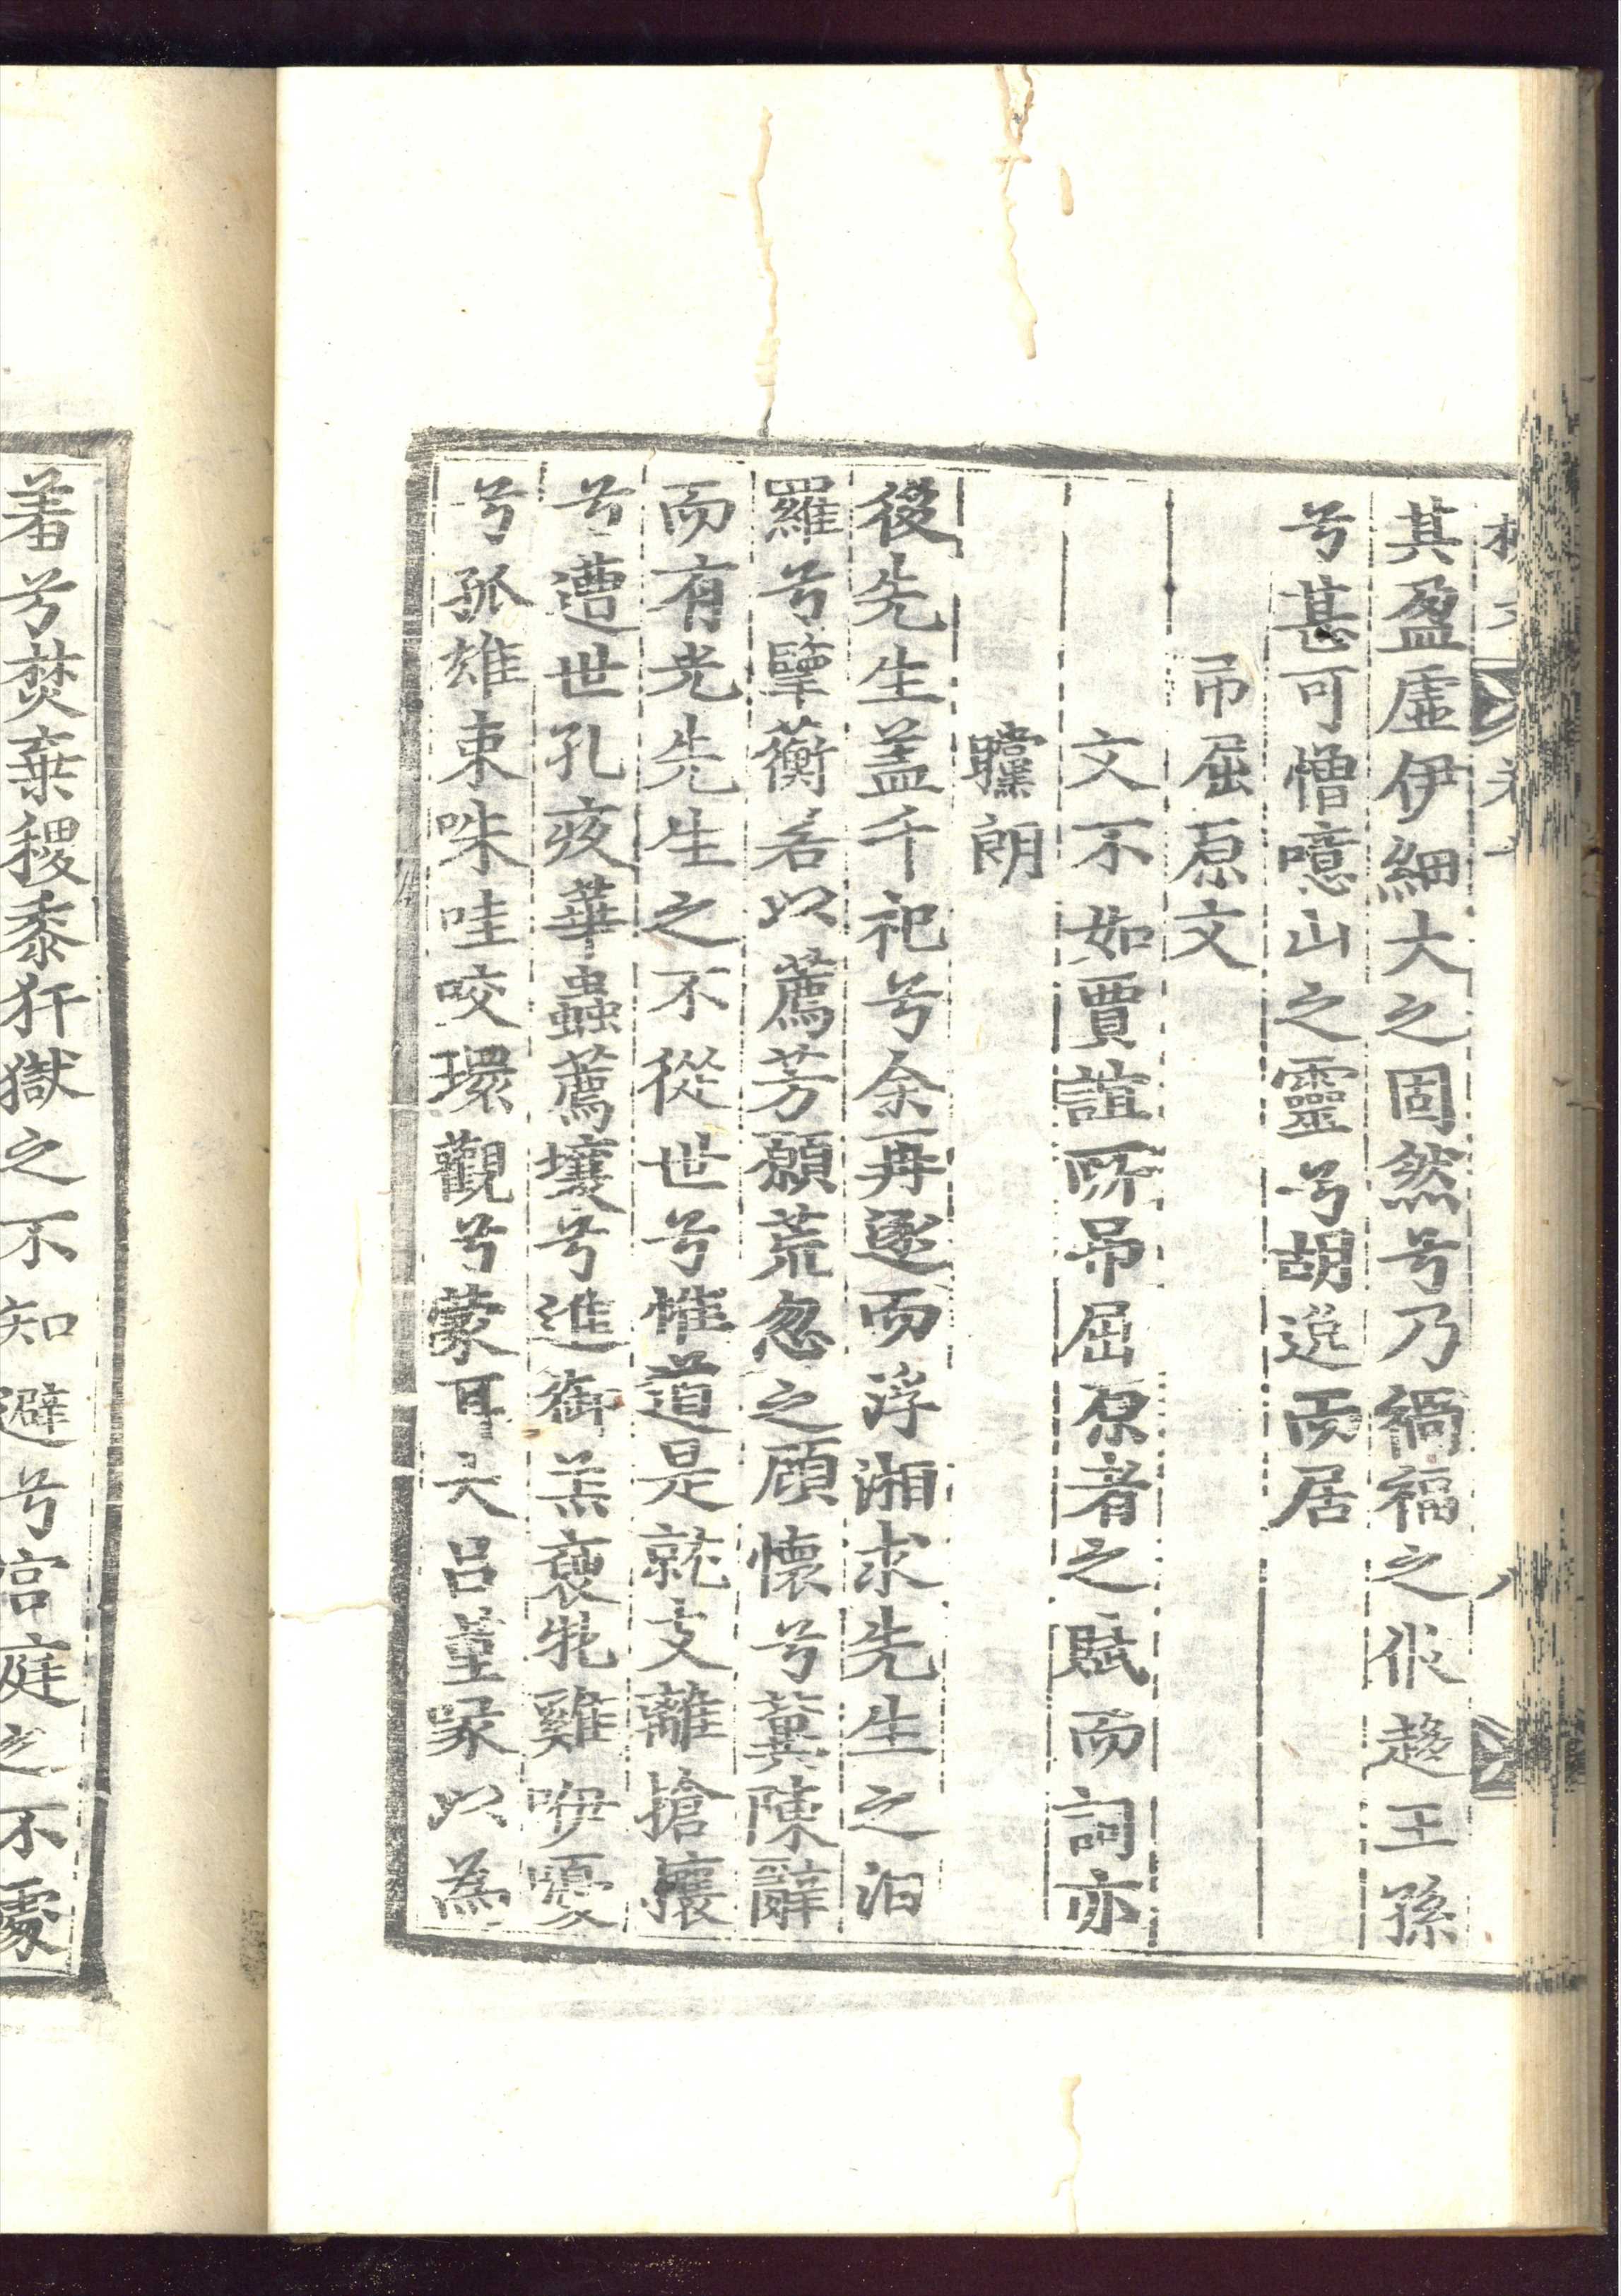 其盈虛伊細大之固然兮乃禍福之攸趍王孫
兮甚可憎噫山之靈兮胡逸而居
吊屈原文
文不如賈誼所吊屈原者之賦而詞亦
曭朗
後先生盖千祀兮余再逐而浮湘求先生之汨
羅兮擥蘅若以薦芳願荒忽之顧懷兮冀陳辭
而有光先生之不從世兮惟道是就支離搶攘
兮遭世孔疚華蟲薦壤兮進御羔褎牝雞咿嚘
兮孤雄束咮哇咬環觀兮蒙耳大呂菫喙以爲
羞兮焚棄稷黍犴獄之不知避兮宮庭之不處